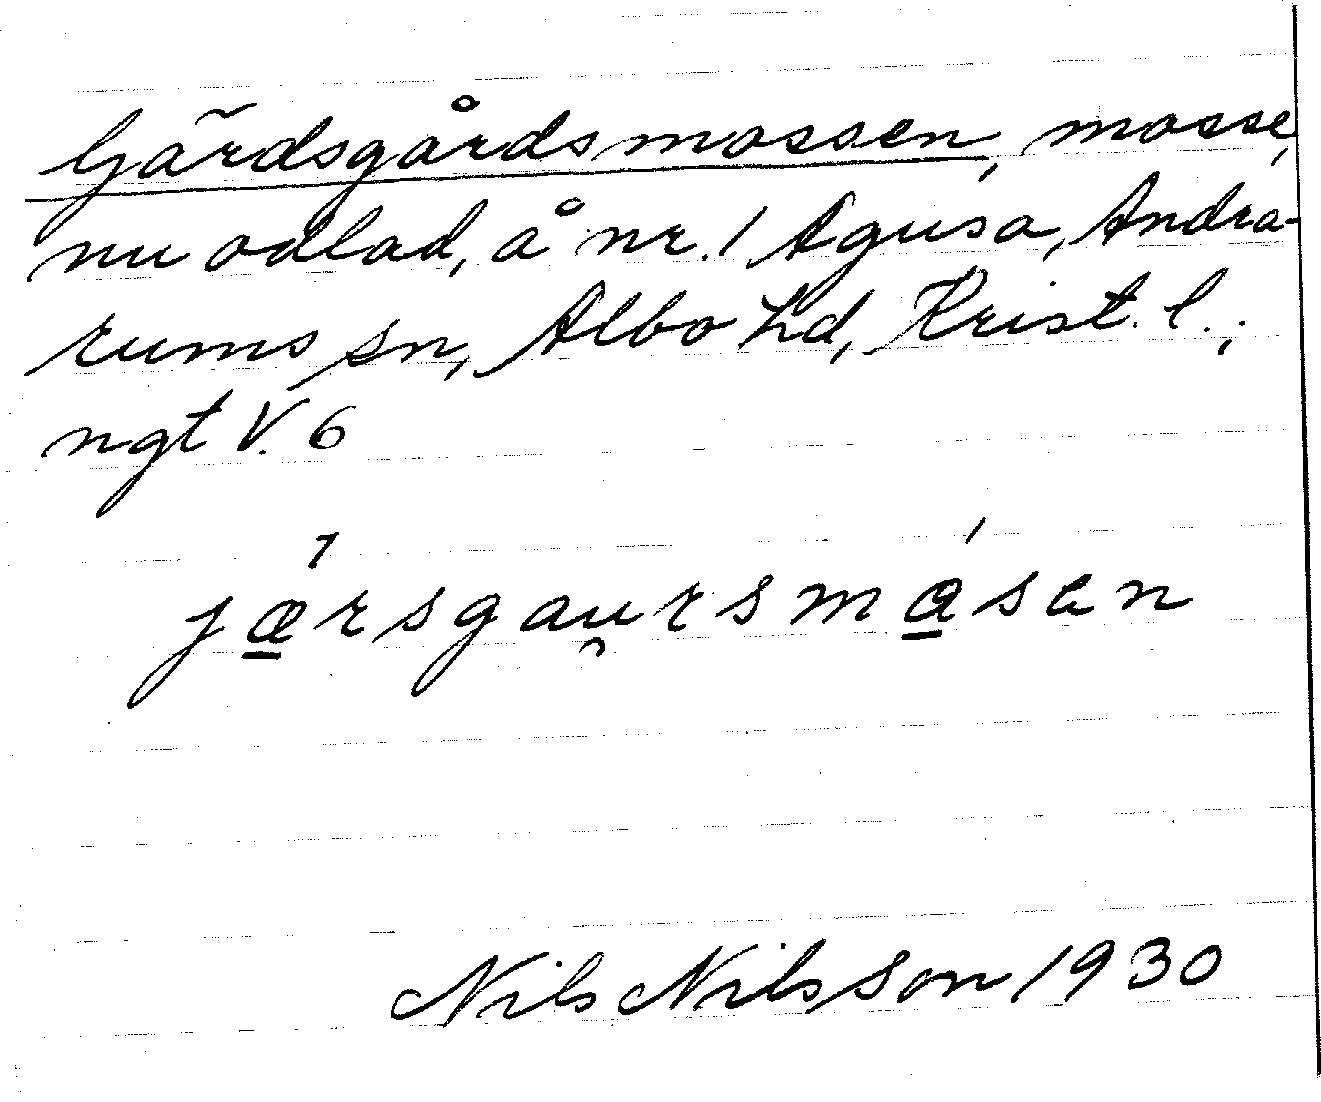 Gärdsgårdsmossen, mosse,
nu odlad, å nr. 1 Agusa, Andra-
rums sn, Albo hd, Krist. l.;
ngt V. 6
jæ̱rsgau̯rsma̱sen
Nils Nilsson 1930